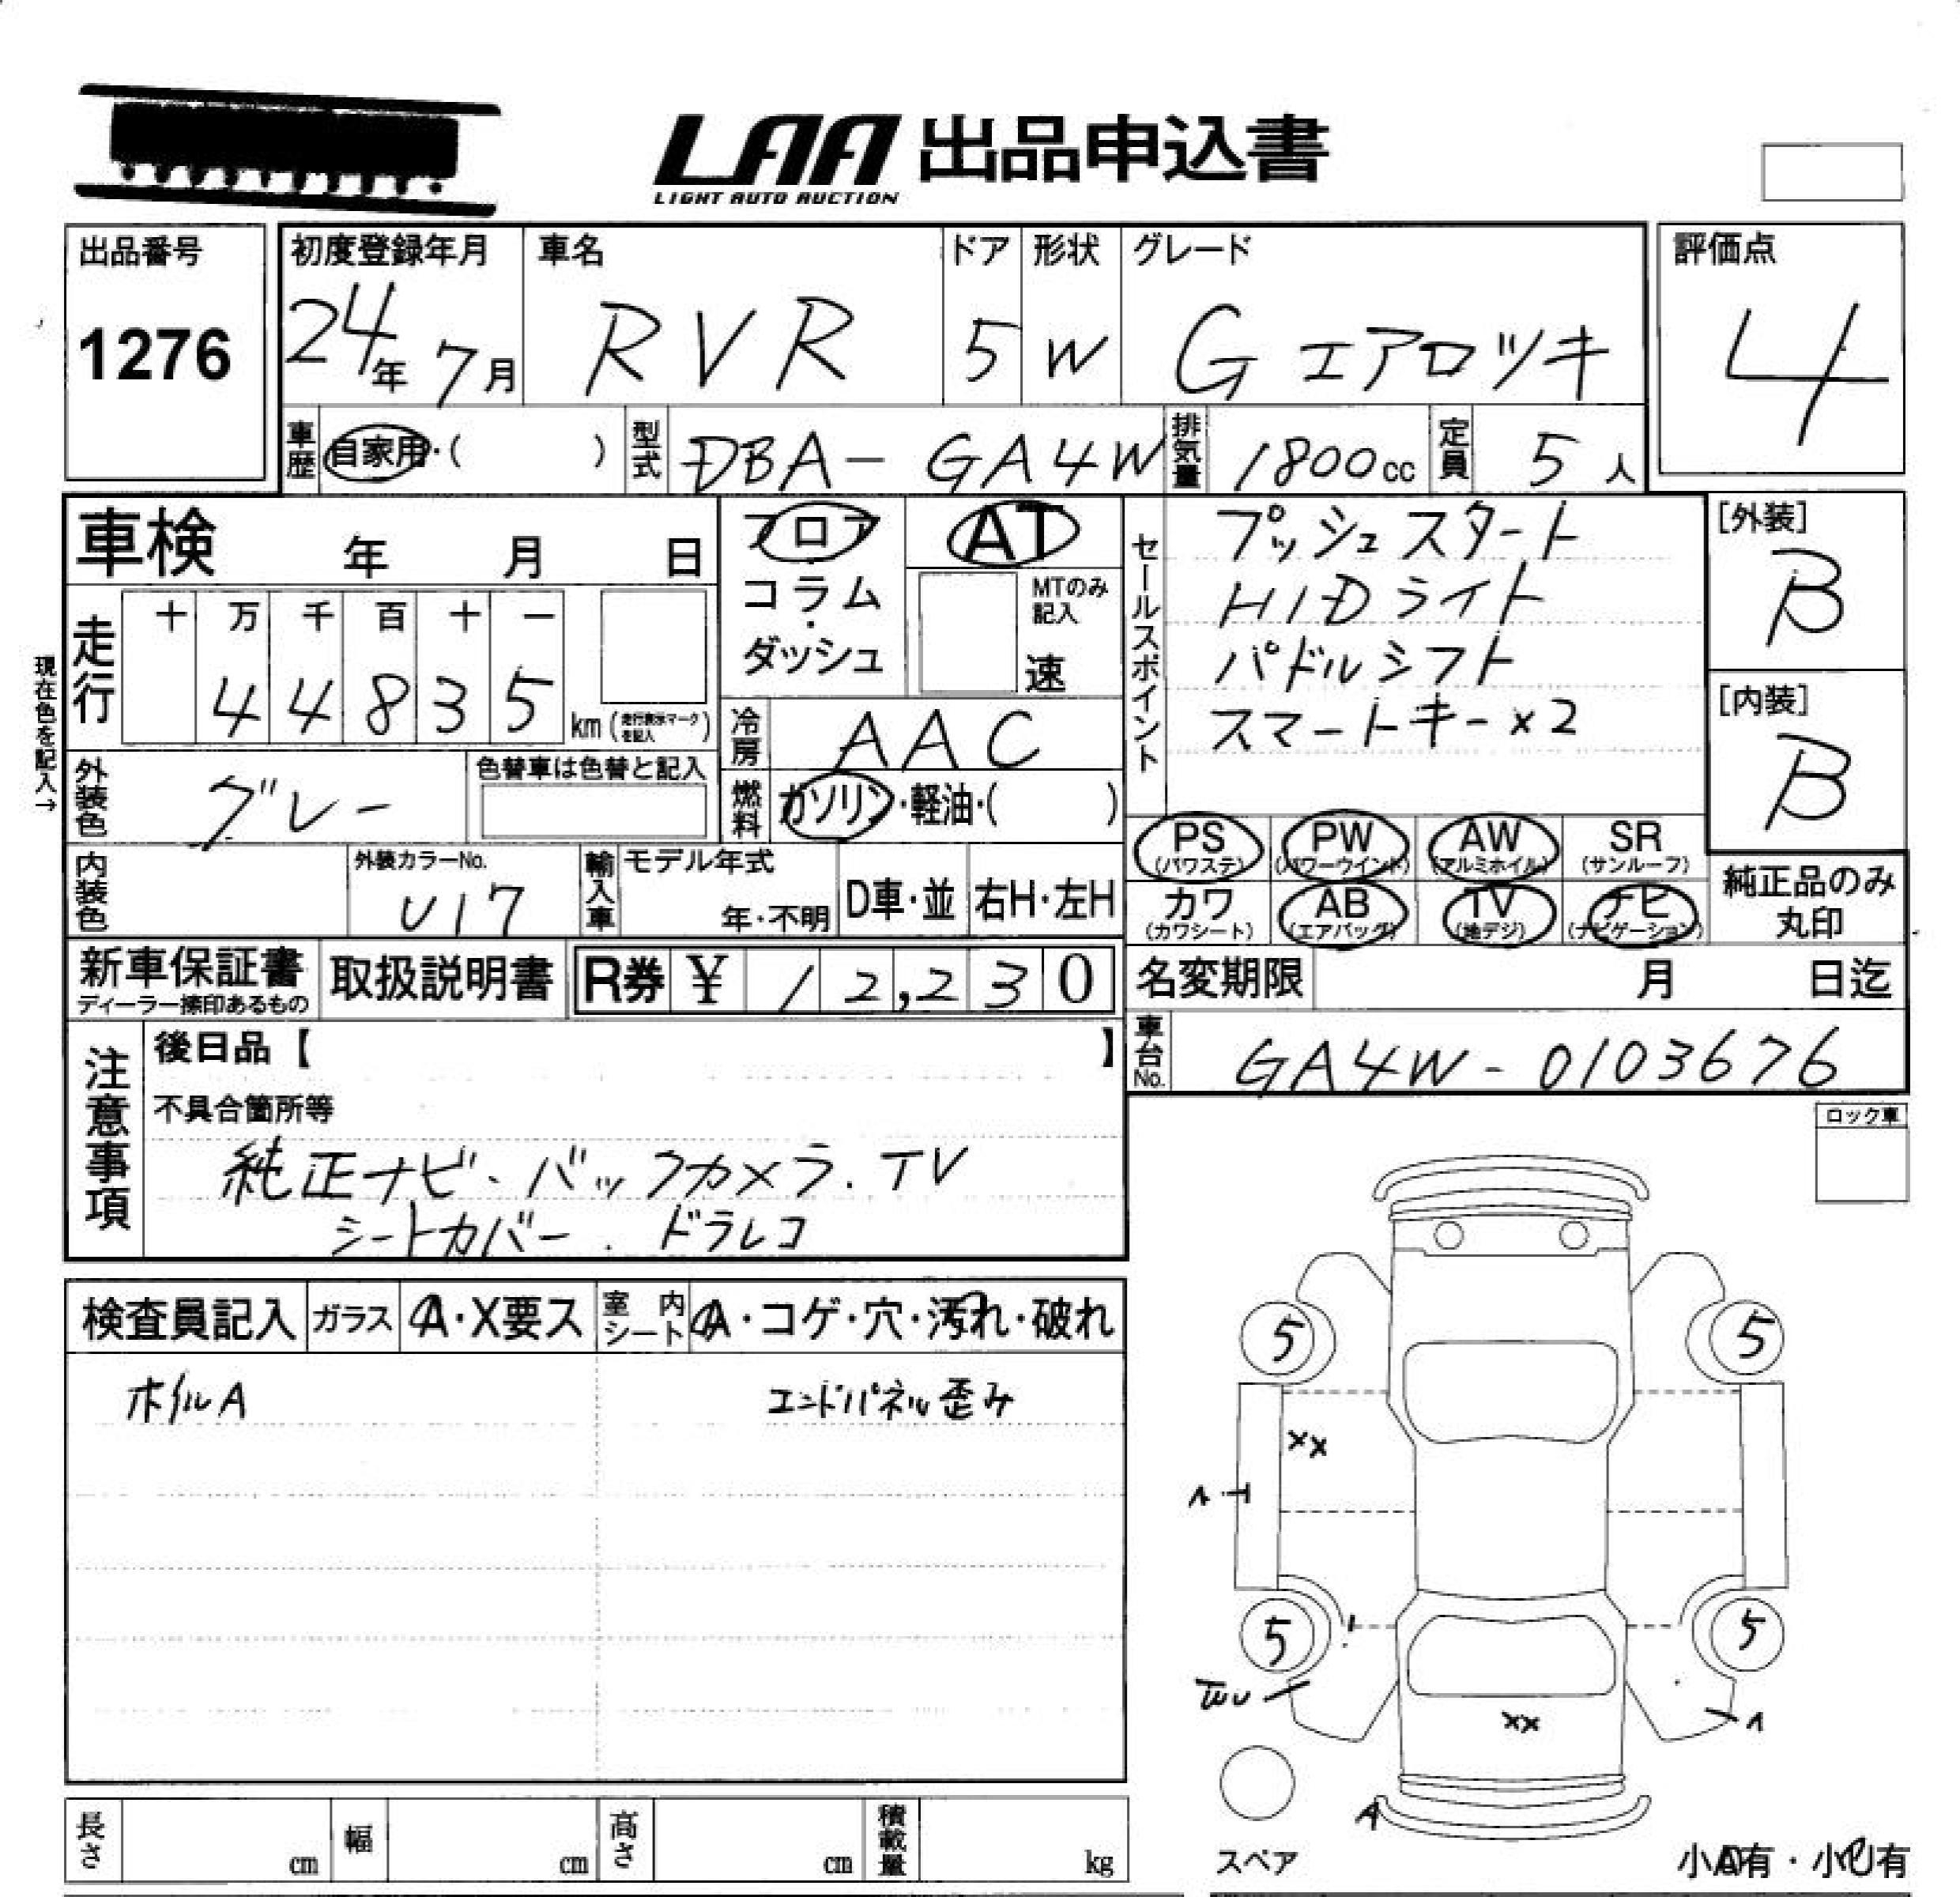 LAA 出品申込書
LIGHT AUTO AUCTION
出品番号
1276
初度登録年月
24年 7月
車名
RVR
ドア
5
形状
W
グレード
G エアロツキ
評価点
4
車歴
自家用・( )
型式
DBA- GA4W
排気量
1800cc
定員
5人
車検 年 月 日
フロア
コラム
ダッシュ
AT
MTのみ
記入
速
セールスポイント
プッシュスタート
HIDライト
パドルシフト
スマートキー×2
[外装]
B
[内装]
B
現在色を記入→
走行
十 万 千 百 十 一
4 4 8 3 5
km(走行表示マークを記入)
冷房
AAC
外装色
グレー
色替車は色替と記入
燃料
ガソリン・軽油・( )
PS
(パワステ)
PW
(パワーウインド)
AW
(アルミホイル)
SR
(サンルーフ)
カワ
(カワシート)
AB
(エアバッグ)
TV
(地デジ)
ナビ
(ナビゲーション)
純正品のみ
丸印
内装色
外装カラーNo.
U17
輸入車
モデル年式
年・不明
D車・並
右H・左H
新車保証書
ディーラー捺印あるもの
取扱説明書
R券 ¥ 12,230
名変期限 月 日迄
車台No.
GA4W-0103676
注意事項
後日品【 】
不具合箇所等
純正ナビ・バックカメラ.TV
シートカバー.ドラレコ
ロック車
検査員記入
ガラス
A・X要ス
室内シート
A・コゲ・穴・汚れ・破れ
ホイルA
エンドパネル歪み
5
5
XX
5
5
XX
A
スペア
長さ cm
幅 cm
高さ cm
積載量 kg
小A有・小U有